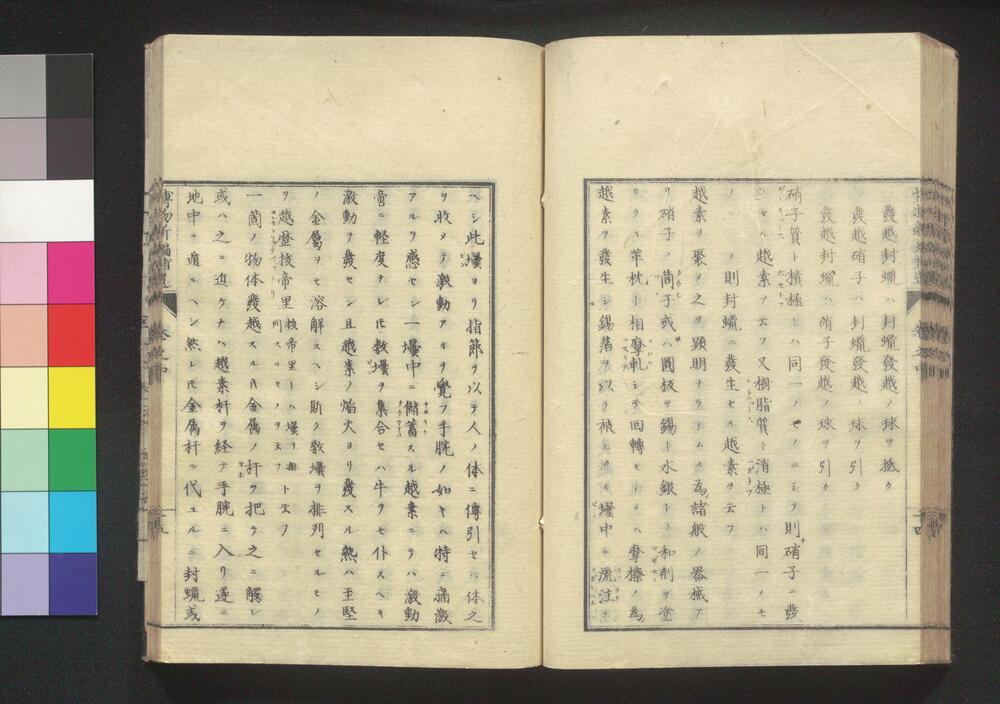 發越封蝋ハ封蝋發越ノ球ヲ抵ク
發越硝子ハ封蝋發越ノ球ヲ引ク
發越封蝋ハ硝子發越ノ球ヲ引ク
硝子質ト積極トハ同一ノモノニシテ則硝子ニ發
セル越素ヲ云フ又樹脂質ト消極トハ同一ノモ
ノノ則封蝋ニ發生セル越素ヲ云フ
越素ヲ聚メ之ヲ顕明ナラシムル為諸般ノ器械ア
リ硝子ノ筒子或ハ圓板ヲ錫ト水銀トノ和剤ヲ塗
リタル革枕ト相摩軋シテ回轉セシハ摩擦ノ為
越素ヲ發生シ錫箔ヲ以テ被 壜中ニ流注
十四
ヘシ此壜ヨリ指節ヲ以テ人ノ体ニ傳引セハ体之
ヲ收メテ激動アルヲ覺フ手腕ノ如キハ特ニ痛激
アルヲ感セシ一壜中ニ儲蓄スル越素ニテハ激動
啻ニ軽度ナレ𪜈数壜ヲ集合セハ牛ヲモ仆スヘキ
激動ヲ發セシ且越素ノ焔火ヨリ發スル熱ハ至堅
ノ金属ヲモ溶解スヘシ斯ク数壜ヲ排列セルモノ
ヲ越歴抜帝里抜帝里トハ壜ヲ排列スルモノヲ云フト云フ
一箇ノ物体發越スル片金属ノ杆ヲ把テ之ニ觸レ
或ハ之ニ近ケナハ越素杆ヲ経テ手腕ニ入リ遂ニ
地中ニ遁ルヘシ然レ𪜈金属杆ニ代ユルニ封蝋或
博物新編補遺 巻之中 十五